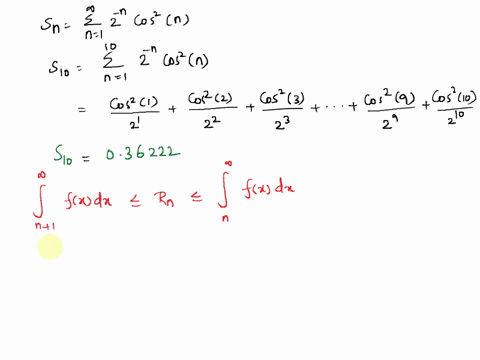 Sₙ = ∑_{n=1}^{∞} 2⁻ⁿ Cos²(n)
S₁₀ = ∑_{n=1}^{10} 2⁻ⁿ Cos²(n)
= Cos²(1)/2¹ + Cos²(2)/2² + Cos²(3)/2³ + ··· + Cos²(9)/2⁹ + Cos²(10)/2¹⁰
S₁₀ = 0.36222
∫_{n+1}^{∞} f(x)dx ≤ Rₙ ≤ ∫_{n}^{∞} f(x)dx